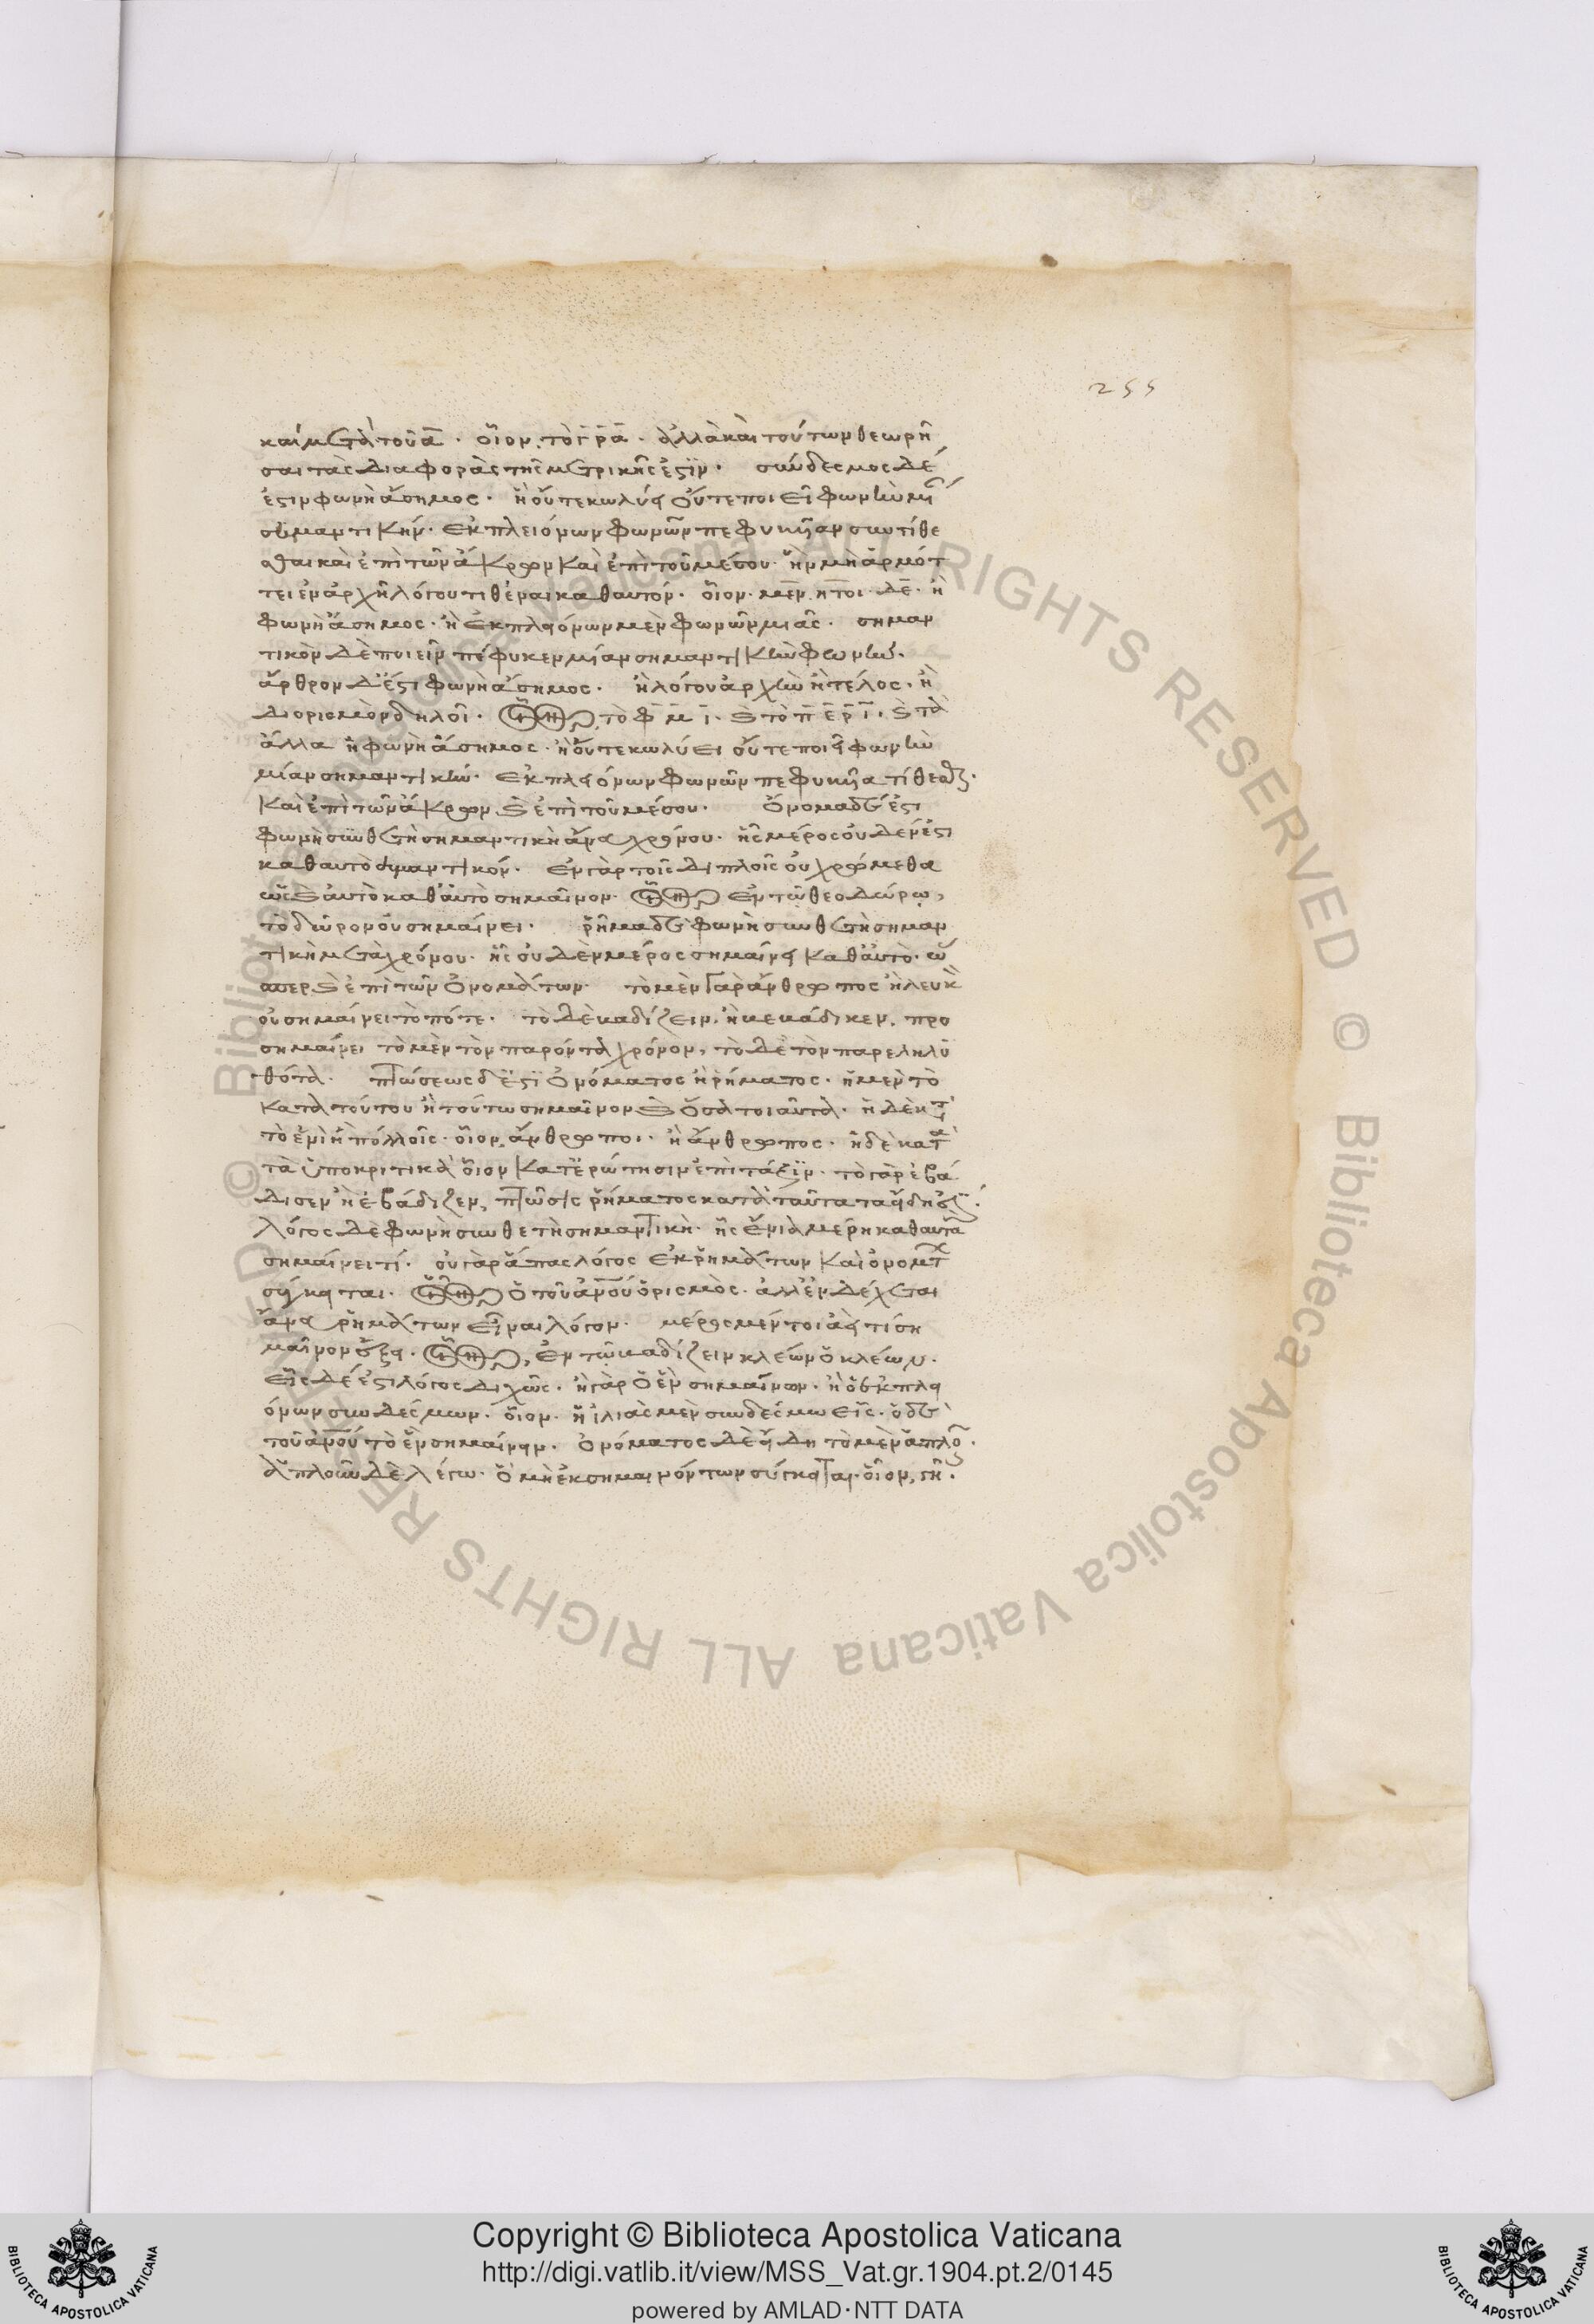 255
καὶ μετὰ τοῦ α̅. οἷον τὸ γ̅ρ̅α̅. ἀλλὰ καὶ τούτων θεωρῆ
σαι τὰς διαφορὰς τῆς μετρικῆς ἐστϊν. σύνδεσμος δέ
ἐστιν φωνὴ ἄσημος. ἣ οὔτε κωλύει οὔτε ποιεῖ φωνὴν μί
σημαντικήν. ἐκ πλειόνων φωνῶν πεφυκῖαν συντίθε
σθαι καὶ ἐπὶ τῶν ἄκρων καὶ ἐπὶ τοῦ μέσου. ἣν μὴ ἁρμότ
τει ἐν ἀρχῆ λόγου τιθέναι καθαυτόν. οἷον. μὲν ἤτοι δέ. ἢ
φωνὴ ἄσημος. ἢ ἐκ πλειόνων μὲν φωνῶν μιᾶς. σημαν
τικὸν δὲ ποιεῖν πέφυκεν μίαν σημαντικὴν φωνήν.
ἄρθρον δ' ἐστι φωνὴ ἄσημος. ἣ λόγου ἀρχὴν ἢ τέλος. ἢ
διορισμὸν δηλοῖ. οἷον τὸ φ̅ μ̅ ι̅. καὶ τὸ π̅ ε̅ ρ̅ ι̅. καὶ τὰ
ἄλλα ἢ φωνὴ ἄσημος. ἣ οὔτε κωλύει οὔτε ποιεῖ φωνὴν
μίαν σημαντικήν. ἐκ πλειόνων φωνῶν πεφυκῖα τίθεσθαι.
καὶ ἐπὶ τῶν ἄκρων καὶ ἐπὶ τοῦ μέσου. ὄνομα δέ ἐστι
φωνὴ συνθετὴ σημαντικὴ ἄνευ χρόνου. ἧς μέρος οὐδέν ἐστι
καθαυτὸ σημαντικόν. ἐν γὰρ τοῖς διπλοῖς οὐ χρώμεθα
ὡς καὶ αὐτὸ καθ' αὑτὸ σημαῖνον. οἷον ἐν τῶ θεοδώρω,
τὸ δῶρον οὐ σημαίνει. ῥῆμα δὲ φωνὴ συνθετὴ σημαν
τικὴ μετὰ χρόνου. ἧς οὐδὲν μέρος σημαίνει καθ' αὑτὸ. ὥ
σπερ καὶ ἐπὶ τῶν ὀνομάτων. τὸ μὲν γὰρ ἄνθρωπος ἢ λευκὸ
οὐ σημαίνει τὸ πότε. τὸ δὲ βαδίζειν, ἢ βεβάδικεν, προ
σημαίνει τὸ μὲν τὸν παρόντα χρόνον, τὸ δὲ τὸν παρεληλυ
θότα. πτώσεως δ' ἐστϊ ὀνόματος ἢ ῥήματος. ἡ μὲν τὸ
κατὰ τούτου ἢ τούτω σημαῖνον καὶ ὅσα τοιαῦτα. ἡ δὲ κτ
τὸ ἑνὶ ἢ πολλοῖς. οἷον ἄνθρωποι. ἢ ἄνθρωπος. ἡ δὲ κατὰ
τὰ ὑποκριτικὰ οἷον κατ' ἐρώτησιν ἐπίταξϊν. τὸ γὰρ ἐβά
δισεν ἢ ἐβάδιζεν, πτῶσις ῥήματος κατὰ ταῦτα τὰ εἴδη ἐστϊ.
λόγος δὲ φωνὴ συνθετὴ σημαντικὴ. ἧς ἔνια μέρη καθαυτὰ
σημαίνει τί. οὐ γὰρ ἅπας λόγος ἐκ ῥημάτων καὶ ὀνομτ
σύγκειται. οἷον ὁ τοῦ ἀνου ὁρισμὸς. ἀλλ' ἐνδέχεται
ἄνευ ῥημάτων εἶναι λόγον. μέρος μέντοι ἀεί τι ση
μαῖνον ἕξει. οἷον, ἐν τῶ βαδίζειν κλέων ὁ κλέων.
εἷς δέ ἐστι λόγος διχῶς. ἢ γὰρ ὁ ἓν σημαίνων. ἢ ὁ ἐκ πλει
όνων συνδέσμων. οἷον. ἡ ἰλιὰς μὲν συνδέσμω εἷς. ὁ δὲ
τοῦ ἀνου τὸ ἓν σημαίνειν. ὀνόματος δὲ εἴδη τὸ μὲν ἁπλοῦ.
ἁπλοῦν δὲ λέγω. ὃ μὴ ἐκ σημαινόντων σύγκειται. οἷον, γῆ.
Copyright © Biblioteca Apostolica Vaticana
http://digi.vatlib.it/view/MSS_Vat.gr.1904.pt.2/0145
powered by AMLAD·NTT DATA